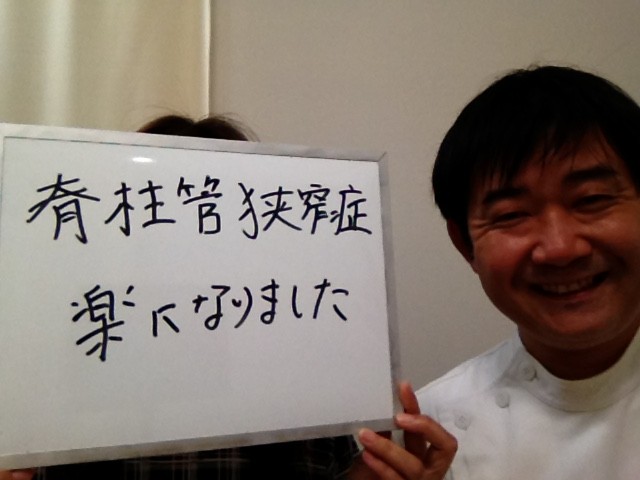 脊柱管狭窄症
楽になりました